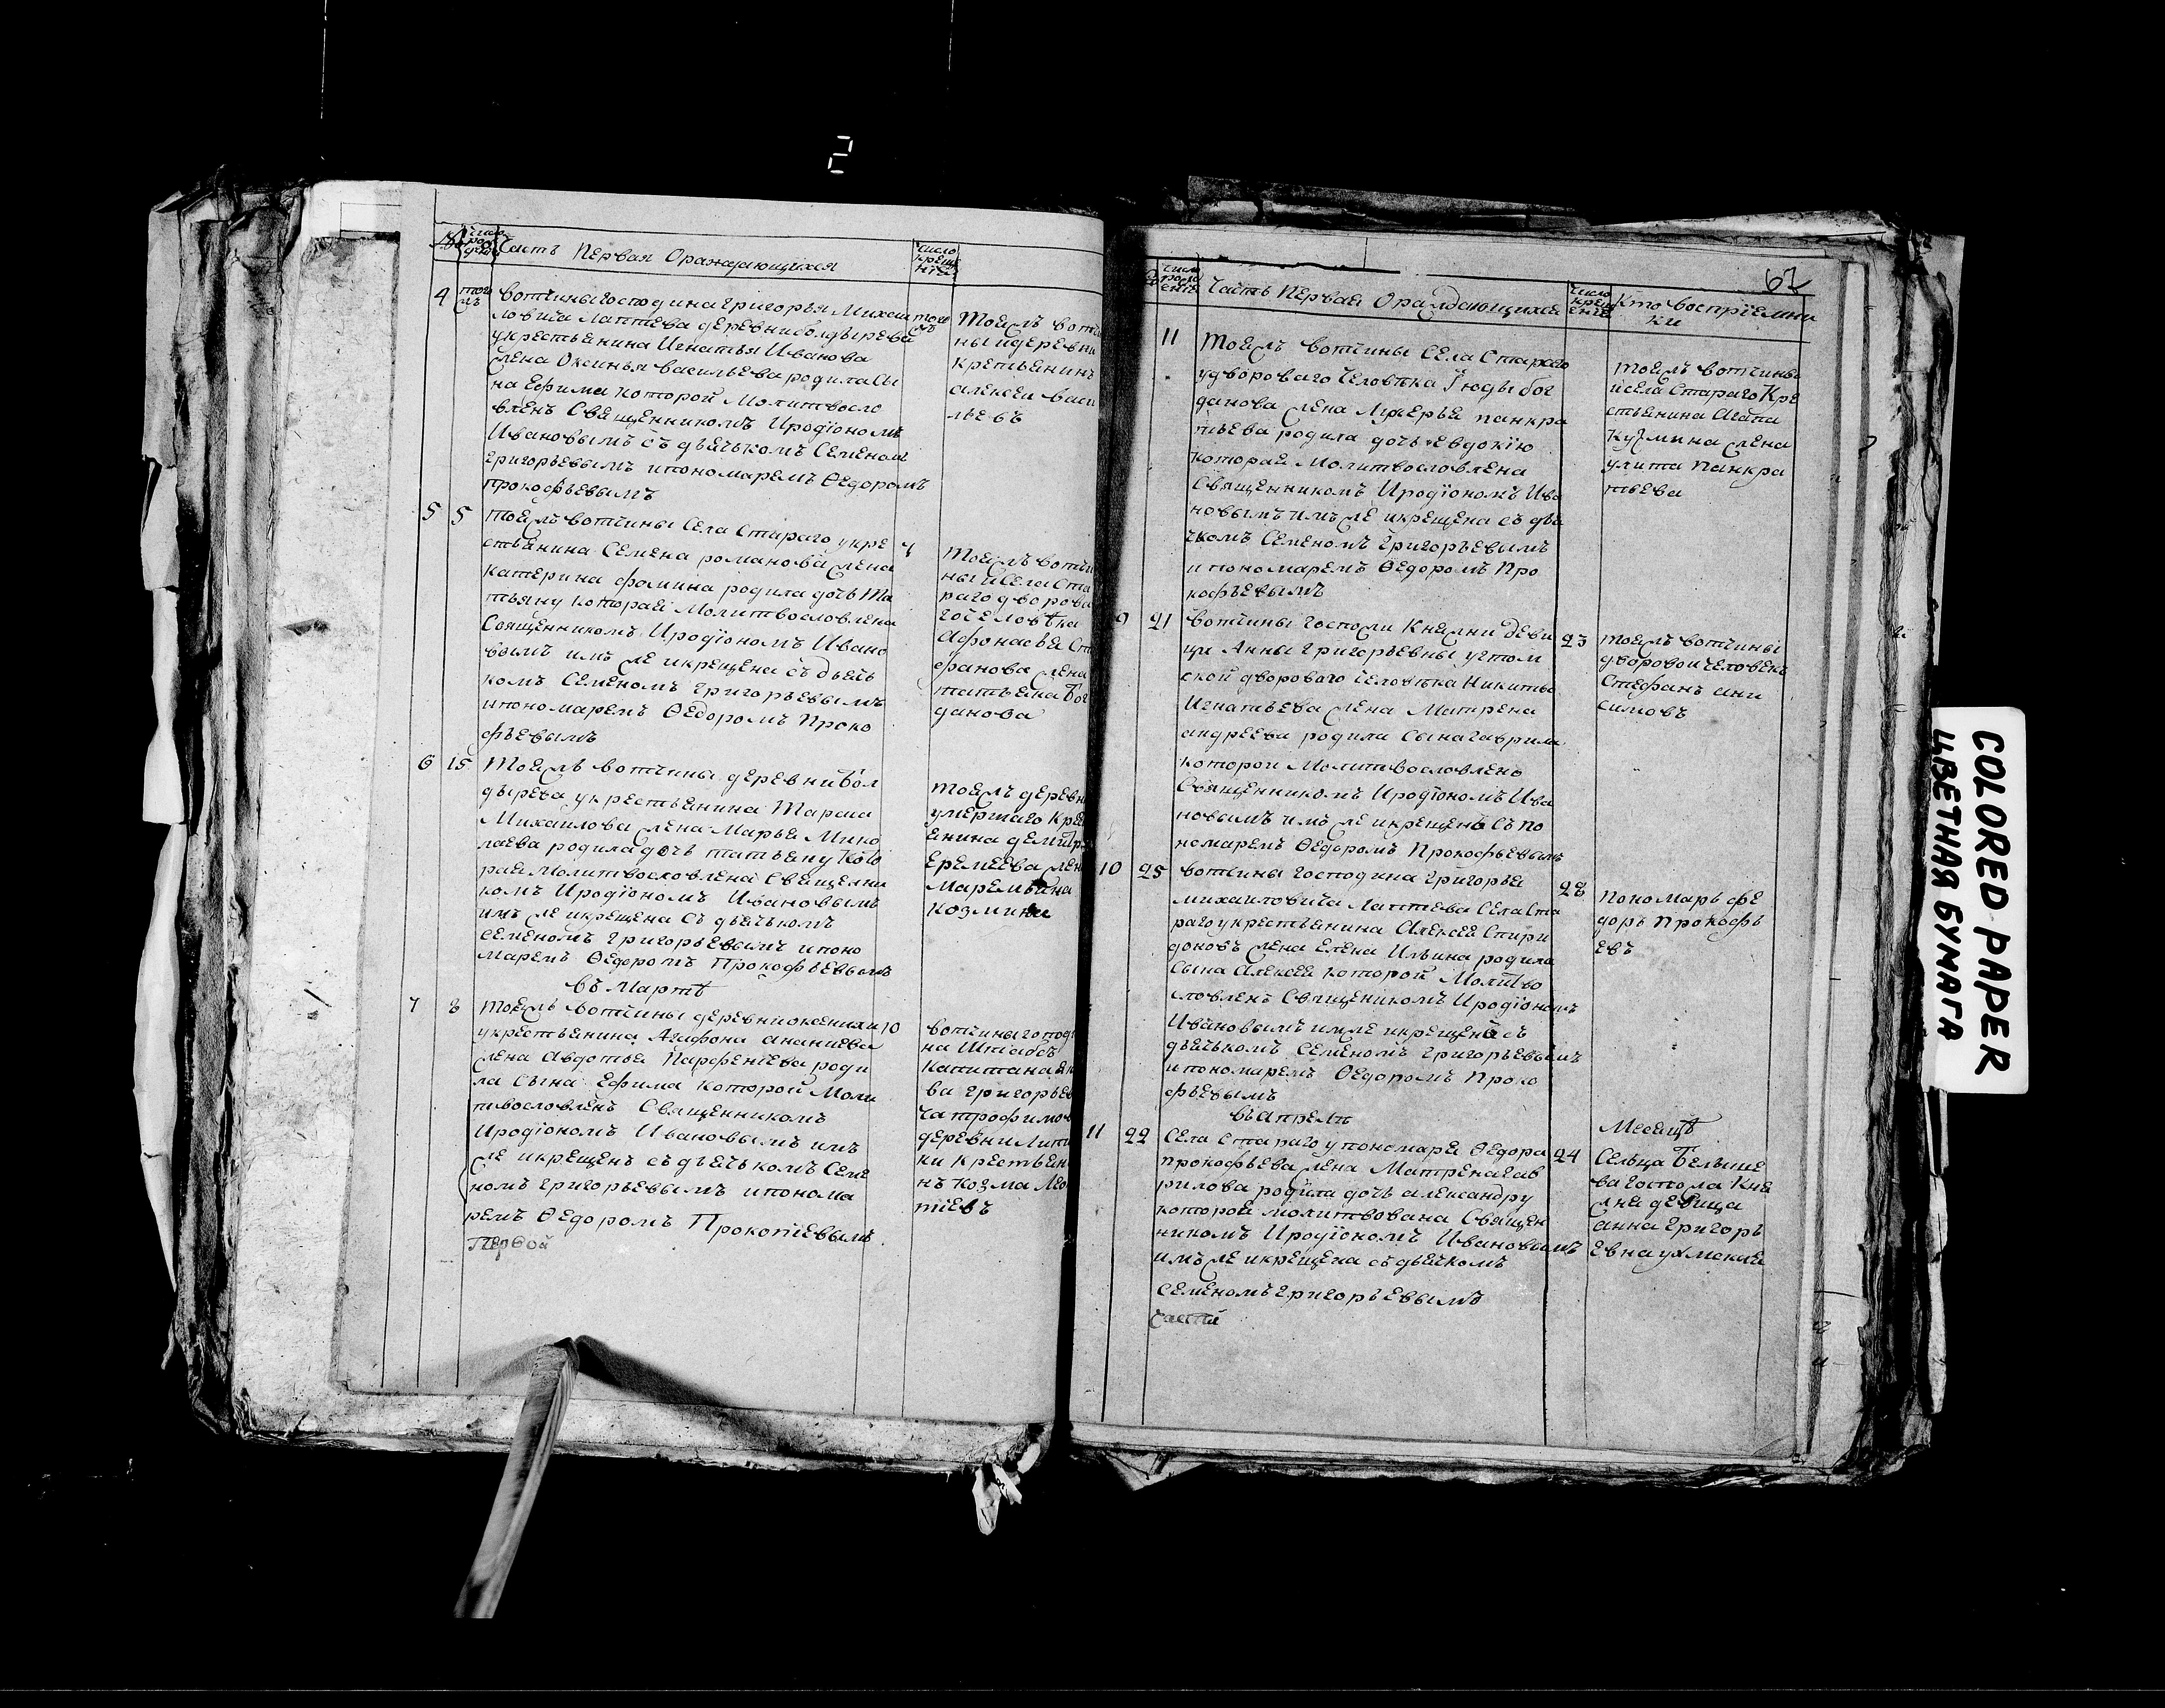 2
№
число рождения
Часть Первая Оражаящихся
число крещения
4
того ж
вотчины господина григорья Михаи
ловича Лаптева деревни болдырева
укрестьянина Игнатья Иванова
жена Оксинья васильева родила сы
на Ефима которой Молитвосло
вленъ Священникомъ Иродїономъ
Ивановымъ съ дьячькомъ Семеномъ
григорьевымъ ипономаремъ Ѳедоромъ
прокофьевымъ
того ж
тоеяжъ вотчи
ны идеревни
крестьянинъ
алексеи васи
льевъ
5
5
тоеяжъ вотчины Села Стараго укре
стьянина Семена романова жена
катерина фомина родила дочь та
тьяну которая Молитвословлена
Священникомъ Иродїономъ Ивано
вымъ имъ же икрещена съ дьячь
комъ Семеномъ григорьевымъ
ипономаремъ Ѳедоромъ Проко
фьевымъ
7
тоеяжъ вотчи
ны иСела Ста
раго дворова
го человѣка
Афонасья Сте
фанова жена
татьяна Бог
данова
6
15
Тоеяжъ вотчины деревни Бол
дырева укрестьянина Тараса
Михаилова жена Марья Мико
лаева родила дочь татьяну кото
рая Молитвословлена Священни
комъ Иродїономъ Ивановымъ
имъ же икрещена съ дьячькомъ
семеномъ григорьевымъ ипоно
маремъ Ѳедоромъ Прокофьевымъ
тоежъ деревн
умершаго крест
янина
еремеева жен
Маремьяна
козмина
въ Мартѣ
7
8
тоеяжъ вотчины деревни
укрестьянина Агафона ананиева
жена Авдотья Парфентїева роди
ла сына Ефима которой Моли
твословленъ Священникомъ
Иродїономъ Ивановымъ имъ
же икрещенъ съ дьячькомъ Семе
номъ григорьевымъ ипонома
ремъ Ѳедоромъ Прокопїевымъ
Первой
10
вотчины господи
на Штабсъ
капитана
ва григорьев
ча трофимов
деревни
ки крестьяни
нъ козма Лео
тїевъ
67
число рождения
Часть Первая Ораждающихся
число крещения
Кто Востриемни
ки
11
Тоеяжъ вотчины Села Стараго
удвороваго человѣка Їюды бог
данова жена Лукерья панкра
тьева родила дочь евдокїю
которая Молитвословлена
Священникомъ Иродїономъ Ива
новымъ имъ же икрещена съ дья
чкомъ Семеномъ григорьевымъ
ипономаремъ Ѳедоромъ Про
кофьевымъ
тоеяжъ вотчины
исела Стараго Кре
стьянина Агапа
кузмина жена
улита панкра
тьева
9
21
вотчины госпожи Княжни деви
цы Анны григорьевны ухтом
ской двороваго человѣка Никиты
Игнатьева жена Матрена
андреева родила Сына гаврила
которои Молитвословлено
Священникомъ Иродїономъ Ива
новымъ имъ же икрещенъ съ по
номаремъ Ѳедоромъ Прокофьевымъ
23
тоеяжъ вотчины
дворовои человекъ
Стефанъ ани
симовъ
10
25
вотчины господина григорья
михаиловича Лаптева Села Ста
раго укрестьянина Алексея Спири
доновъ жена Елена Ильина родила
сына Алексея которой Молитво
словленъ Священикомъ Иродїономъ
Ивановымъ имже икрещенъ съ
дьячькомъ семеномъ григорьевымъ
ипономаремъ Ѳедоромъ Проко
фьевымъ
28
пономарь фе
доръ Прокофь
евъ
въ Апрелѣ
Месецѣ
11
22
Села Стараго упономаря Ѳедора
прокофьева жена Матрена гав
рилова родила дочь александру
которой молитвована Священ
никомъ Иродїономъ Ивановымъ
имъ же икрещена съ дьячкомъ
семеномъ григорьевымъ
части
24
Сельца Бельше
ва госпожа Кня
жна девица
анна григорь
евна
COLORED PAPER
ЦВЕТНАЯ БУМАГА